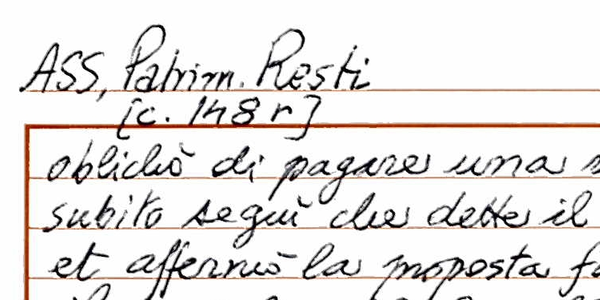 ASS, Patrim. Resti
[c. 148 r]
oblichò di pagare una
subito seguì che dette il
et affermò la proposta